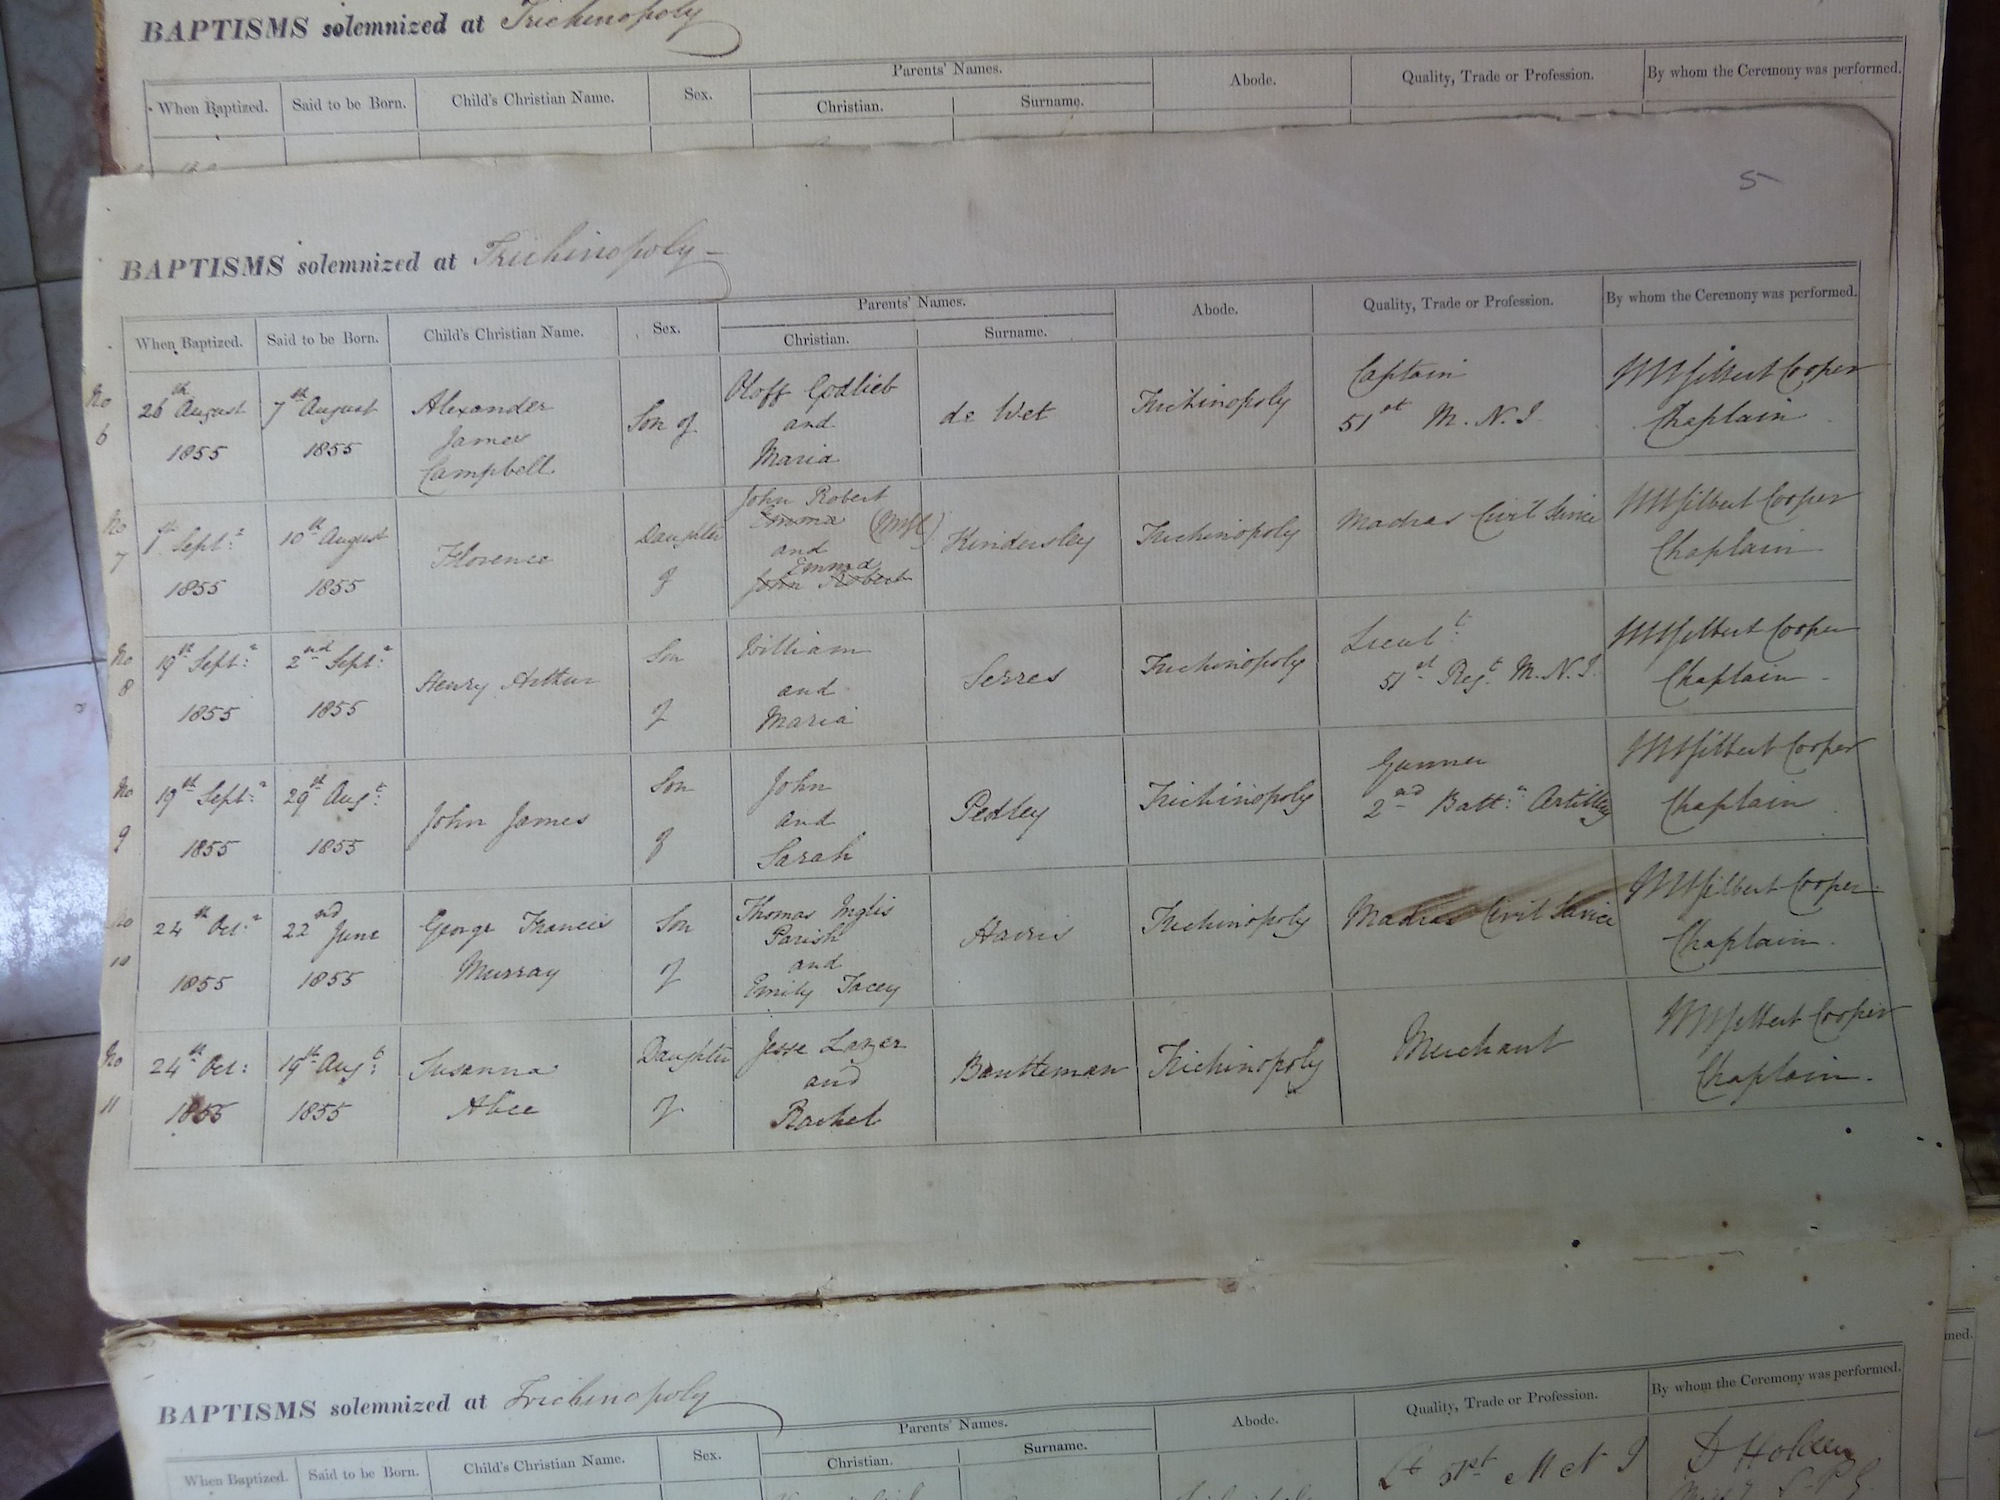 BAPTISMS solemnized at Trichinopoly
When Baptized. Said to be Born. Child's Christian Name. Sex. Parents' Names. Christian. Surname. Abode. Quality, Trade or Profession. By whom the Ceremony was performed.
5
BAPTISMS solemnized at Trichinopoly
When Baptized. Said to be Born. Child's Christian Name. Sex. Parents' Names. Christian. Surname. Abode. Quality, Trade or Profession. By whom the Ceremony was performed.
No 6
26th August 1855
7th August 1855
Alexander
James
Campbell
Son of
Oloff Godlieb
and
Maria
de Wet
Trichinopoly
Captain
51st M.N.I.
Gilbert Cooper
Chaplain
No 7
1st Septr 1855
10th August 1855
Florence
Daughter of
John Robert
Emma
and
Emma
John Robert
Kindersley
Trichinopoly
Madras Civil Service
Gilbert Cooper
Chaplain
No 8
19th Septr 1855
2nd Septr 1855
Henry Arthur
Son of
William
and
Maria
Serres
Trichinopoly
Lieutt
51st Regt M.N.I.
Gilbert Cooper
Chaplain
No 9
19th Septr 1855
29th Augt 1855
John James
Son of
John
and
Sarah
Pedley
Trichinopoly
Gunner
2nd Battn Artillry
Gilbert Cooper
Chaplain
No 10
24th Octr 1855
22nd June 1855
George Francis
Murray
Son of
Thomas Inglis
Parish
and
Emily Tacey
Harris
Trichinopoly
Madras Civil Service
Gilbert Cooper
Chaplain.
No 11
24th Oct: 1855
19th Augt: 1855
Susanna
Alice
Daughter of
Jesse Lazer
and
Rachel
Bautteman
Trichinopoly
Merchant
Gilbert Cooper
Chaplain.
BAPTISMS solemnized at Trichinopoly
When Baptized. Said to be Born. Child's Christian Name. Sex. Parents' Names. Christian. Surname. Abode. Quality, Trade or Profession. By whom the Ceremony was performed.
Lt 51st M N I
D Holden
med.